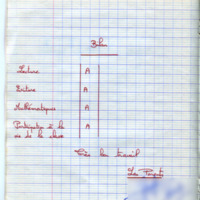 Bilan
Lecture A
Ecriture A
Mathématiques A
Participation à la A
vie de la classe
Très bon travail
Les Parents